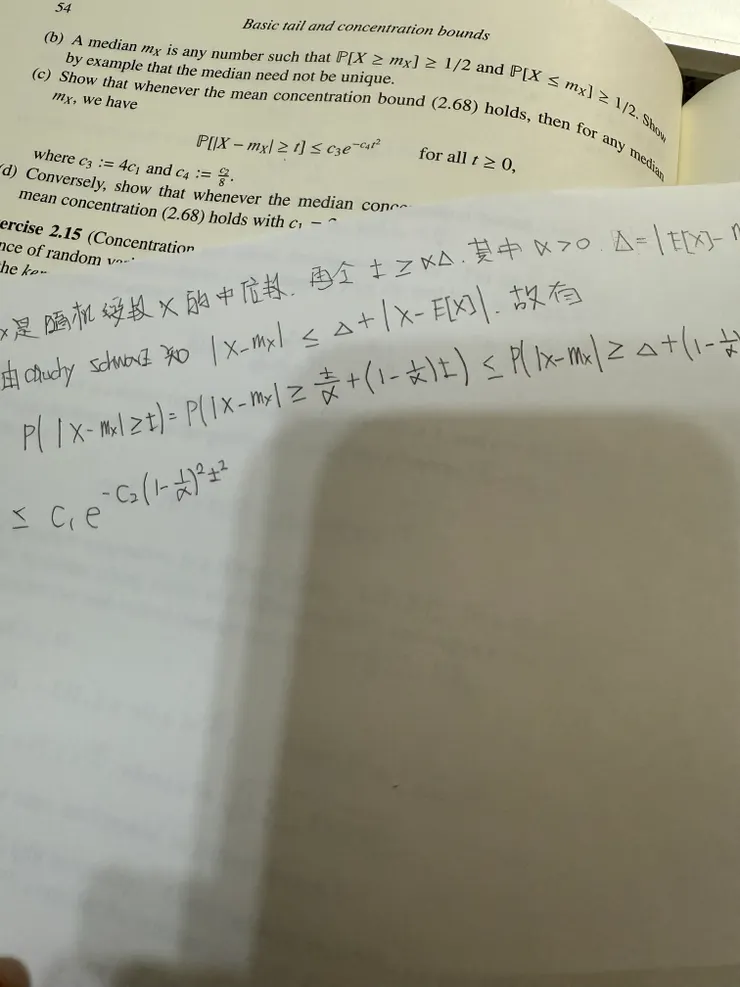 54
Basic tail and concentration bounds
(b) A median m_X is any number such that ℙ[X ≥ m_X] ≥ 1/2 and ℙ[X ≤ m_X] ≥ 1/2. Show
by example that the median need not be unique.
(c) Show that whenever the mean concentration bound (2.68) holds, then for any median
m_X, we have
ℙ[|X − m_X| ≥ t] ≤ c₃e^{−c₄t²} for all t ≥ 0,
where c₃ := 4c₁ and c₄ := c₂/8.
d) Conversely, show that whenever the median conc
mean concentration (2.68) holds with c₁
ercise 2.15 (Concentration
nce of random
the
x是随机变数 X 的中位数. 再令 t ≥ αΔ. 其中 α>0. Δ=|E[X]-
由 Cauchy 知 |X-m_x| ≤ Δ+|X-E[X]|. 故有
P(|X-m_x|≥t)=P(|X-m_x|≥ t/α+(1-1/α)t) ≤ P(|X-m_x|≥ Δ+(1-1/α
≤ C₁e^{-C₂(1-1/α)²t²}